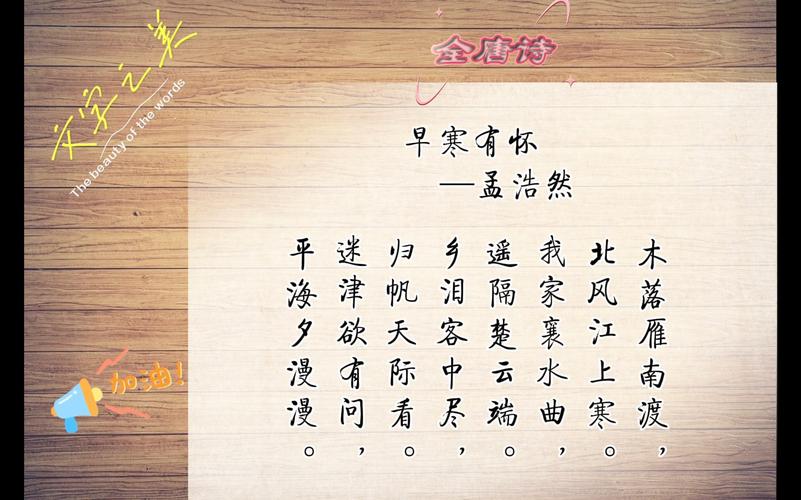 全唐诗
文字之美
The beauty of the words
早寒有怀
—孟浩然
木落雁南渡，
北风江上寒。
我家襄水曲，
遥隔楚云端。
乡泪客中尽，
归帆天际看。
迷津欲有问，
平海夕漫漫。
加油！